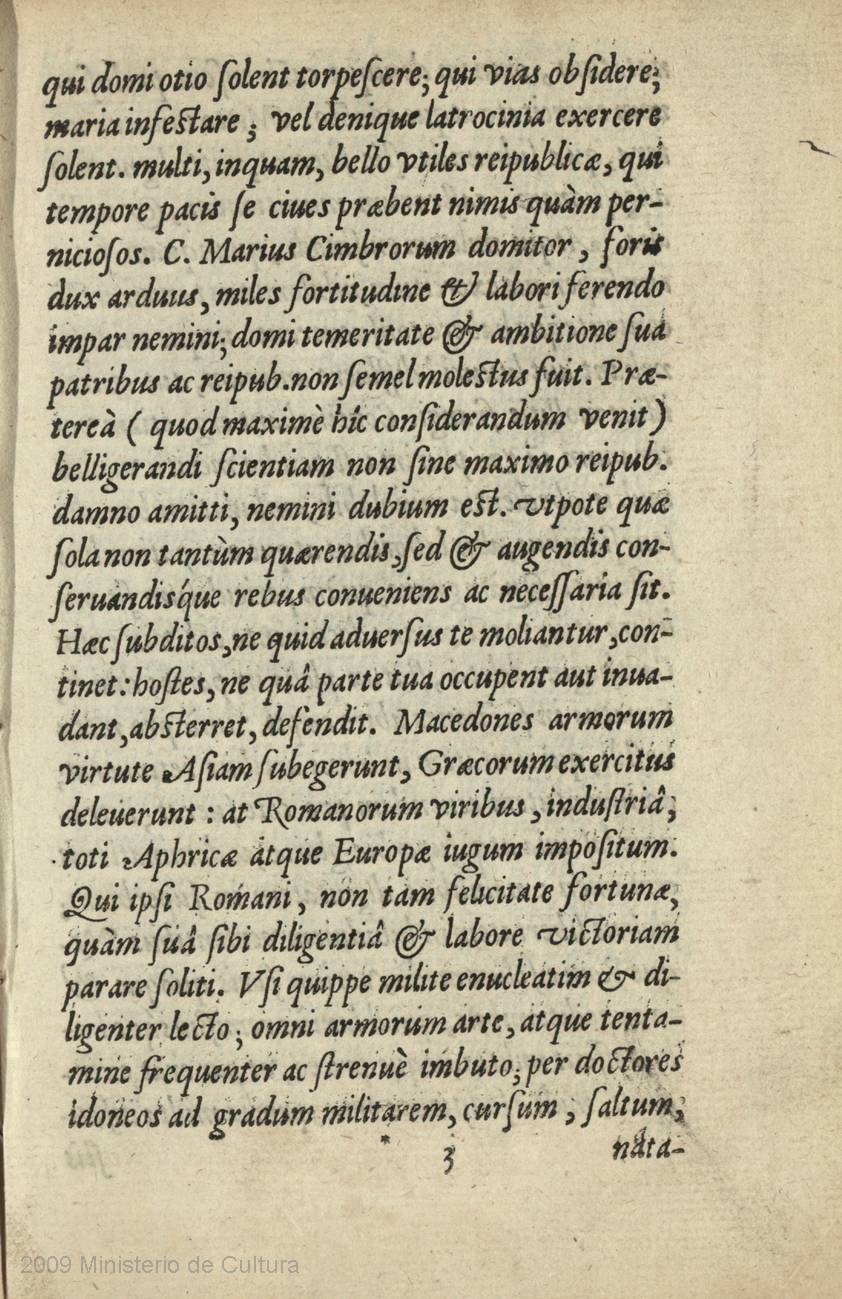 qui domi otio ſolent torpeſcere; qui vias obſidere;
maria infeſtare ; vel denique latrocinia exercere
ſolent. multi, inquam, bello vtiles reipublicæ, qui
tempore pacis ſe ciues præbent nimis quàm per-
nicioſos. C. Marius Cimbrorum domitor , foris
dux arduus, miles fortitudine & labori ferendo
impar nemini; domi temeritate & ambitione ſua
patribus ac reipub. non ſemel moleſtus fuit. Præ-
tereà ( quod maximè hîc conſiderandum venit)
belligerandi ſcientiam non ſine maximo reipub.
damno amitti, nemini dubium eſt. vtpote quæ
ſola non tantùm quærendis, ſed & augendis con-
ſeruandiſque rebus conueniens ac neceſſaria ſit.
Hæc ſubditos, ne quid aduerſus te moliantur, con-
tinet: hoſtes, ne quâ parte tua occupent aut inua-
dant, abſterret, defendit. Macedones armorum
virtute Aſiam ſubegerunt, Græcorum exercitus
deleuerunt : at Romanorum viribus , induſtriâ,
toti Aphricæ atque Europæ iugum impoſitum.
Qui ipſi Romani , non tam felicitate fortunæ,
quàm ſuâ ſibi diligentiâ & labore victoriam
parare ſoliti. Vſi quippe milite enucleatim & di-
ligenter lecto; omni armorum arte, atque tenta-
mine frequenter ac ſtrenuè imbuto; per doctores
idoneos ad gradum militarem, curſum , ſaltum,
* 3 nata-
2009 Ministerio de Cultura